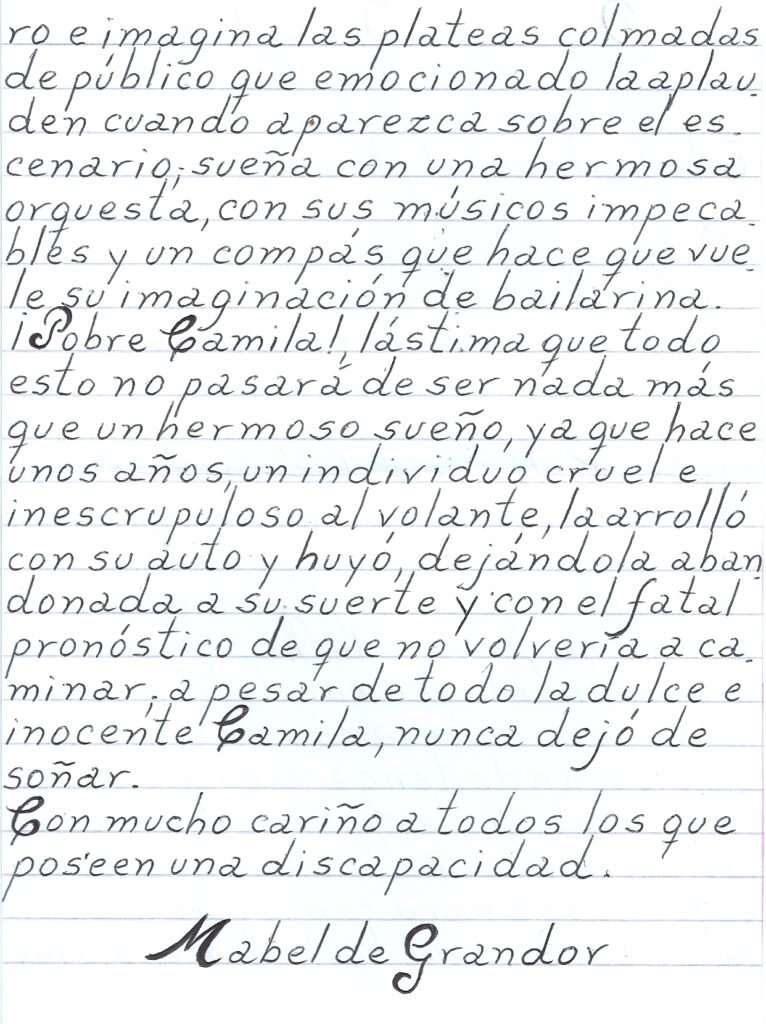 ro e imagina las plateas colmadas
de público que emocionado la aplau.
den cuando aparezca sobre el es.
cenario; sueña con una hermosa
orquesta, con sus músicos impeca.
bles y un compás que hace que vue.
le su imaginación de bailarina.
¡Pobre Camila!, lástima que todo
esto no pasará de ser nada más
que un hermoso sueño, ya que hace
unos años, un individuo cruel e
inescrupuloso al volante, la arrolló
con su auto y huyó, dejándola aban
donada a su suerte y con el fatal
pronóstico de que no volvería a ca.
minar; a pesar de todo la dulce e
inocente Camila, nunca dejó de
soñar.
Con mucho cariño a todos los que
poseen una discapacidad.
Mabel de Grandor